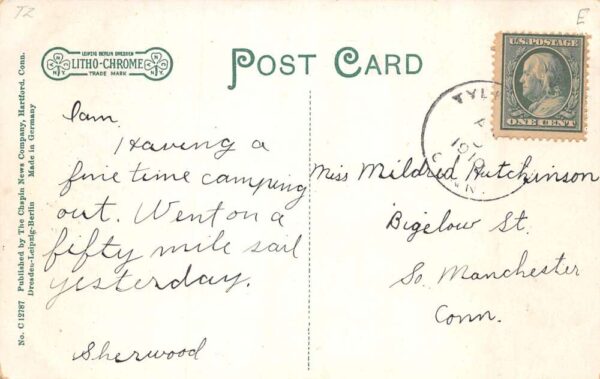 TZ
E
LEIPZIG BERLIN DRESDEN
LITHO-CHROME
TRADE MARK
N.Y.
N.Y.
POST CARD
U.S. POSTAGE
ONE CENT
TYL
A
1910
CONN.
No. C12787 Published by The Chapin News Company, Hartford, Conn.
Dresden-Leipzig-Berlin Made in Germany
I am
Having a
fine time camping
out. Went on a
fifty mile sail
yesterday.
Sherwood
Miss Mildred Hutchinson
Bigelow St.
So. Manchester
Conn.